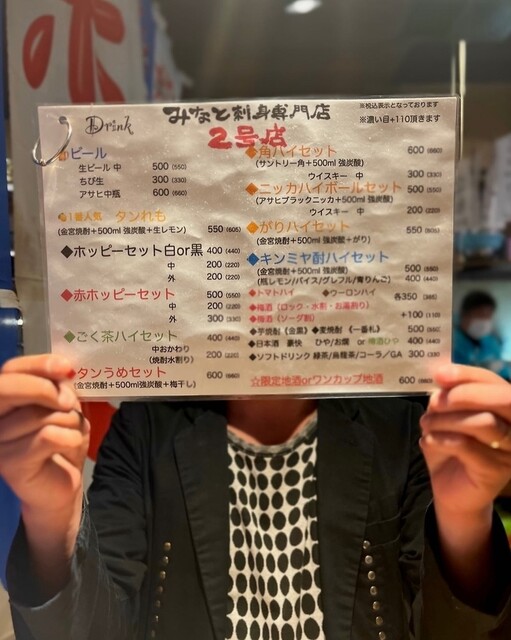 Drink
みなと刺身専門店
2号店
※税込表示となっております
※濃い目+110頂きます
ビール
生ビール 中 500 (550)
ちび生 300 (330)
アサヒ中瓶 600 (660)
1番人気 タンれも
(金宮焼酎+500ml 強炭酸+生レモン) 550 (605)
◆ホッピーセット白or黒 400 (440)
中 200 (220)
外 200 (220)
◆赤ホッピーセット 500 (550)
中 200 (220)
外 300 (330)
◆ごく茶ハイセット 400 (440)
中おかわり 200 (220)
(焼酎水割り)
◆タンうめセット 600 (660)
(金宮焼酎+500ml強炭酸+梅干し)
◆角ハイセット 600 (660)
(サントリー角+500ml 強炭酸)
ウイスキー 中 300 (330)
◆ニッカハイボールセット 500 (550)
(アサヒブラックニッカ+500ml 強炭酸)
ウイスキー 中 200 (220)
◆がりハイセット 550 (605)
(金宮焼酎+500ml 強炭酸+がり)
◆キンミヤ酎ハイセット
(金宮焼酎+500ml 強炭酸) 500 (550)
(瓶レモン/バイス/グレフル/青りんご) 400 (440)
◆トマトハイ ◆ウーロンハイ 各350 (385)
◆梅酒(ロック・水割・お湯割り)
◆梅酒(ソーダ割) +100 (110)
◆芋焼酎《金黒》◆麦焼酎《一番札》 500 (550)
◆日本酒 豪快 ひや/お燗 or 樽酒ひや 400 (440)
◆ソフトドリンク 緑茶/烏龍茶/コーラ/GA 300 (330)
☆限定地酒orワンカップ地酒 600 (660)